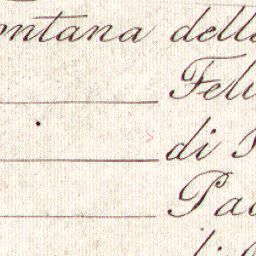 ontana dell
Feli
di
Pa
di